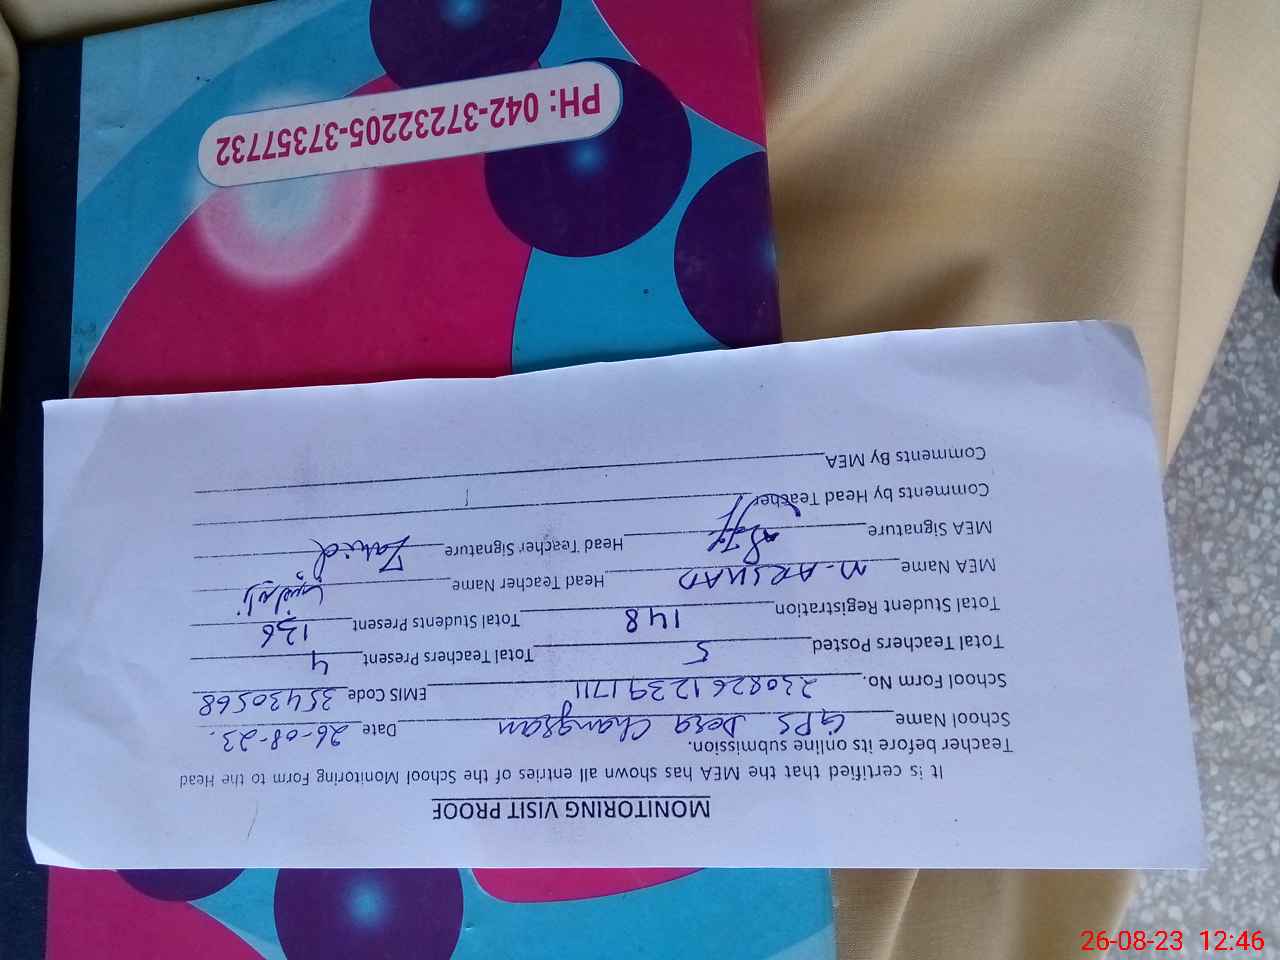 MONITORING VISIT PROOF
It is certified that the MEA has shown all entries of the School Monitoring Form to the Head
Teacher before its online submission.
School Name GPS Dera Changran Date 26-08-23.
School Form No. 2308261239 1711 EMIS Code 35430568
Total Teachers Posted 5 Total Teachers Present 4
Total Student Registration 148 Total Students Present 136
MEA Name M-ARSHAD Head Teacher Name
MEA Signature Head Teacher Signature Zahid
Comments by Head Teacher
Comments By MEA
PH: 042-37232205-37357732
26-08-23 12:46